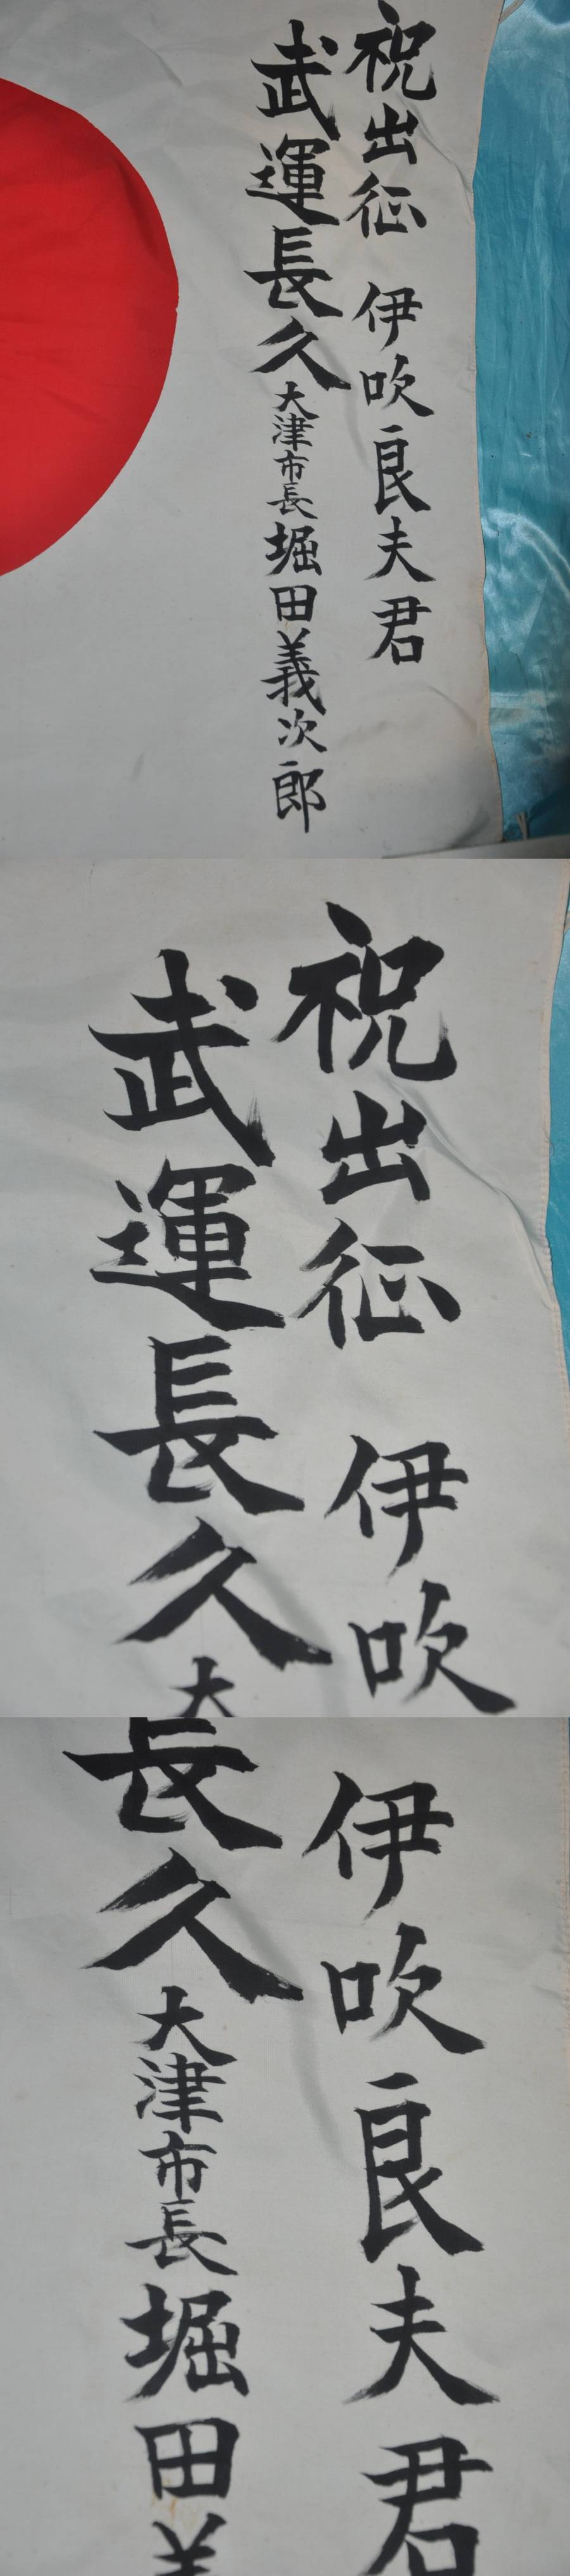 祝出征　伊吹良夫君
武運長久　大津市長堀田義次郎
祝出征　伊吹
武運長久大
伊吹良夫君
長久大津市長堀田義